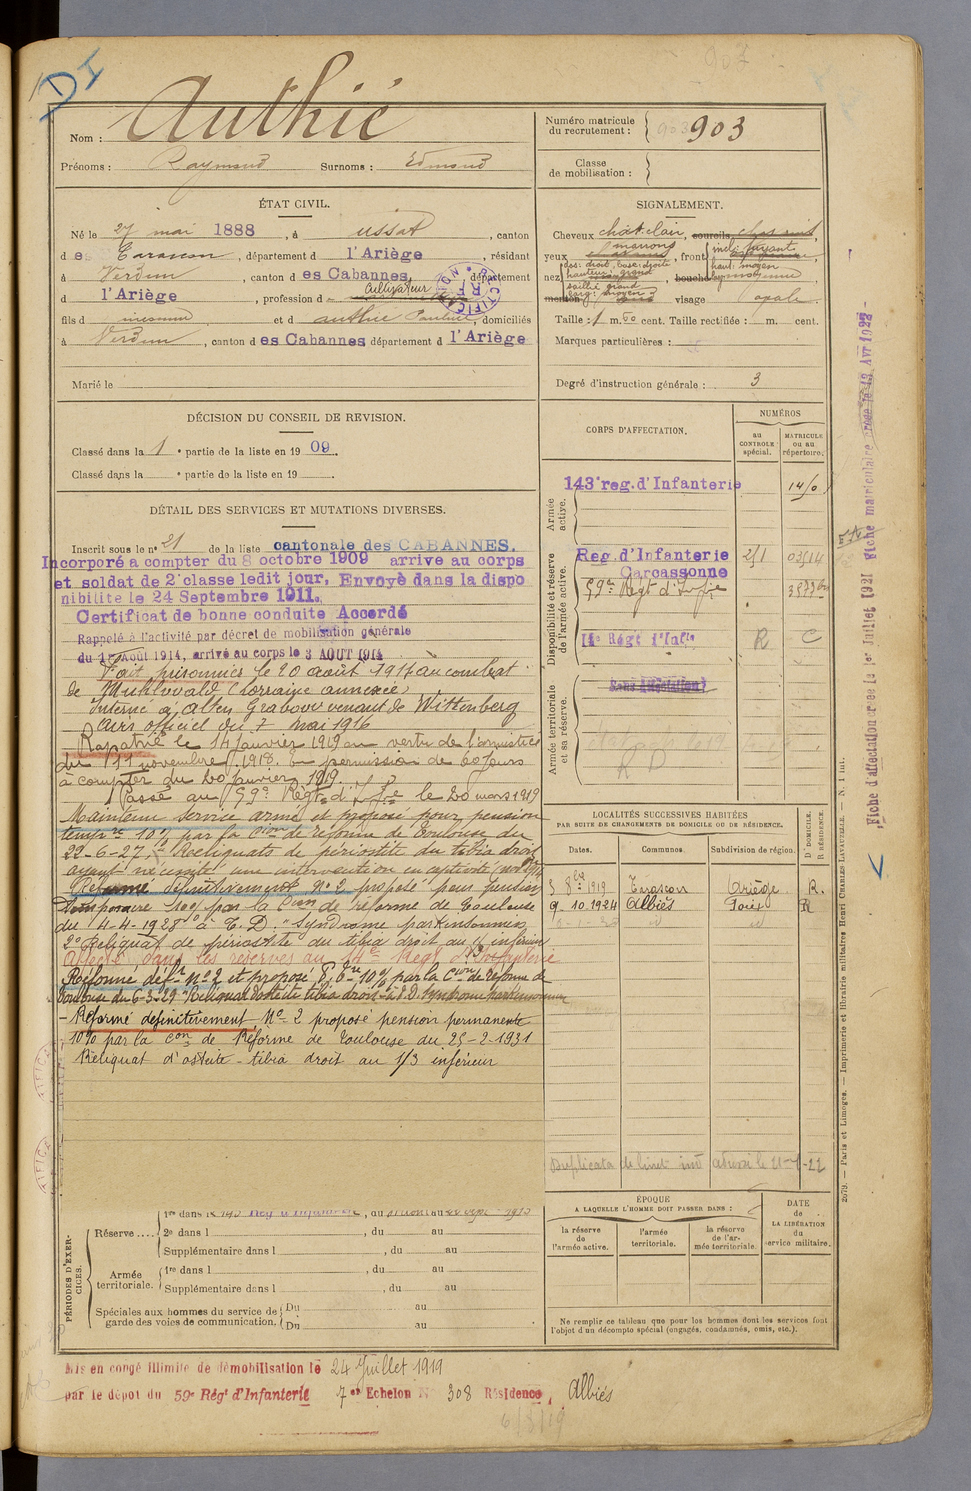 DI
907
Nom : Authié
Prénoms : Raymond Surnoms : Edmond
Numéro matricule du recrutement : 903
Classe de mobilisation :
ÉTAT CIVIL.
Né le 27 mai 1888, à Ussat, canton
d es Tarascon, département d l'Ariège, résidant
à Verdun, canton d es Cabannes, département
d l'Ariège, profession d cultivateur
fils d et d authié Pauline, domiciliés
à Verdun, canton d es Cabannes département d l'Ariège
Marié le
SIGNALEMENT.
Cheveux chât. clair, sourcils
yeux marrons, front incl: fuyante
haut: moyen
nez dos: droit, base: droite
hauteur: grand
saillie grand
larg: moyen
bouche
menton visage ovale
Taille : 1 m. cent. Taille rectifiée : m. cent.
Marques particulières :
Degré d'instruction générale : 3
DÉCISION DU CONSEIL DE REVISION.
Classé dans la 1e partie de la liste en 1909.
Classé dans la e partie de la liste en 19
DÉTAIL DES SERVICES ET MUTATIONS DIVERSES.
Inscrit sous le n° 21 de la liste cantonale des CABANNES.
Incorporé a compter du 8 octobre 1909 arrivé au corps
et soldat de 2e classe ledit jour, Envoyé dans la dispo
nibilité le 24 Septembre 1911.
Certificat de bonne conduite Accordé
Rappelé à l'activité par décret de mobilisation générale
du 1er Août 1914, arrivé au corps le 3 AOUT 1914
Fait prisonnier le 20 août 1914 au combat
de Muhlwald (Lorraine annexée)
Interné à Alten Grabow venant de Wittenberg
Avis officiel du 7 mai 1916
Rapatrié le 14 Janvier 1919 en vertu de l'armistice
du 11 novembre 1918. En permission de 60 jours
à compter du 20 Janvier 1919.
Passé au 59e Régt d'Infie le 20 mars 1919
Maintenu service armé et proposé pour pension
tempre 10% par la Cion de réforme de Toulouse du
22-6-27, Reliquats de périostite du tibia droit
ayant nécessité une intervention en captivité
Réformé définitivement n° 2 proposé pour pension
temporaire 100% par la Cion de réforme de Toulouse
du 4-4-1928 1° à T. D. "Syndrome parkinsonnien
2° Reliquat de périostite du tibia droit au 1/3 inférieur
Affecté dans les réserves au 14e Régt d'Infanterie
Réformé déft n° 2 et proposé 10% par la Cion de réforme de
Toulouse du 6-3-29 "Reliquat d'ostéite tibia droit
- Réformé définitivement N° 2 proposé pension permanente
10% par la Con de Réforme de Toulouse du 25-2-1931
Reliquat d'ostéite - tibia droit au 1/3 inférieur
CORPS D'AFFECTATION.
NUMÉROS
au CONTROLE spécial.
MATRICULE ou au répertoire.
Armée active.
143e reg. d'Infanterie
Disponibilité et réserve de l'armée active.
Reg. d'Infanterie
Carcassonne 03514
59e Régt d'Infie
14e Régt d'Infie R C
Armée territoriale et sa réserve.
Sans Affectation
R D
LOCALITÉS SUCCESSIVES HABITÉES
PAR SUITE DE CHANGEMENTS DE DOMICILE OU DE RÉSIDENCE.
Dates. Communes. Subdivision de région. D. DOMICILE. R. RÉSIDENCE.
5 8bre 1919 Tarascon Ariège R.
9.10.1924 Albiès Foix R
ÉPOQUE
A LAQUELLE L'HOMME DOIT PASSER DANS :
la réserve de l'armée active.
l'armée territoriale.
la réserve de l'armée territoriale.
DATE de LA LIBÉRATION du service militaire.
Ne remplir ce tableau que pour les hommes dont les services font
l'objet d'un décompte spécial (engagés, condamnés, omis, etc.).
PÉRIODES D'EXERCICES.
Réserve ....
1re dans l
2e dans l , du au
Supplémentaire dans l , du au
Armée territoriale.
1re dans l , du au
Supplémentaire dans l , du au
Spéciales aux hommes du service de garde des voies de communication.
Du au
Du au
Mis en congé illimité de démobilisation le 24 Juillet 1919
par le dépôt du 59e Régt d'Infanterie 7e Echelon N° 308 Résidence, Albiès
Fiche d'affectation créée le 1er Juillet 1921 Fiche matriculaire
2079. — Paris et Limoges. — Imprimerie et librairie militaires Henri CHARLES-LAVAUZELLE. — N. 1 int.